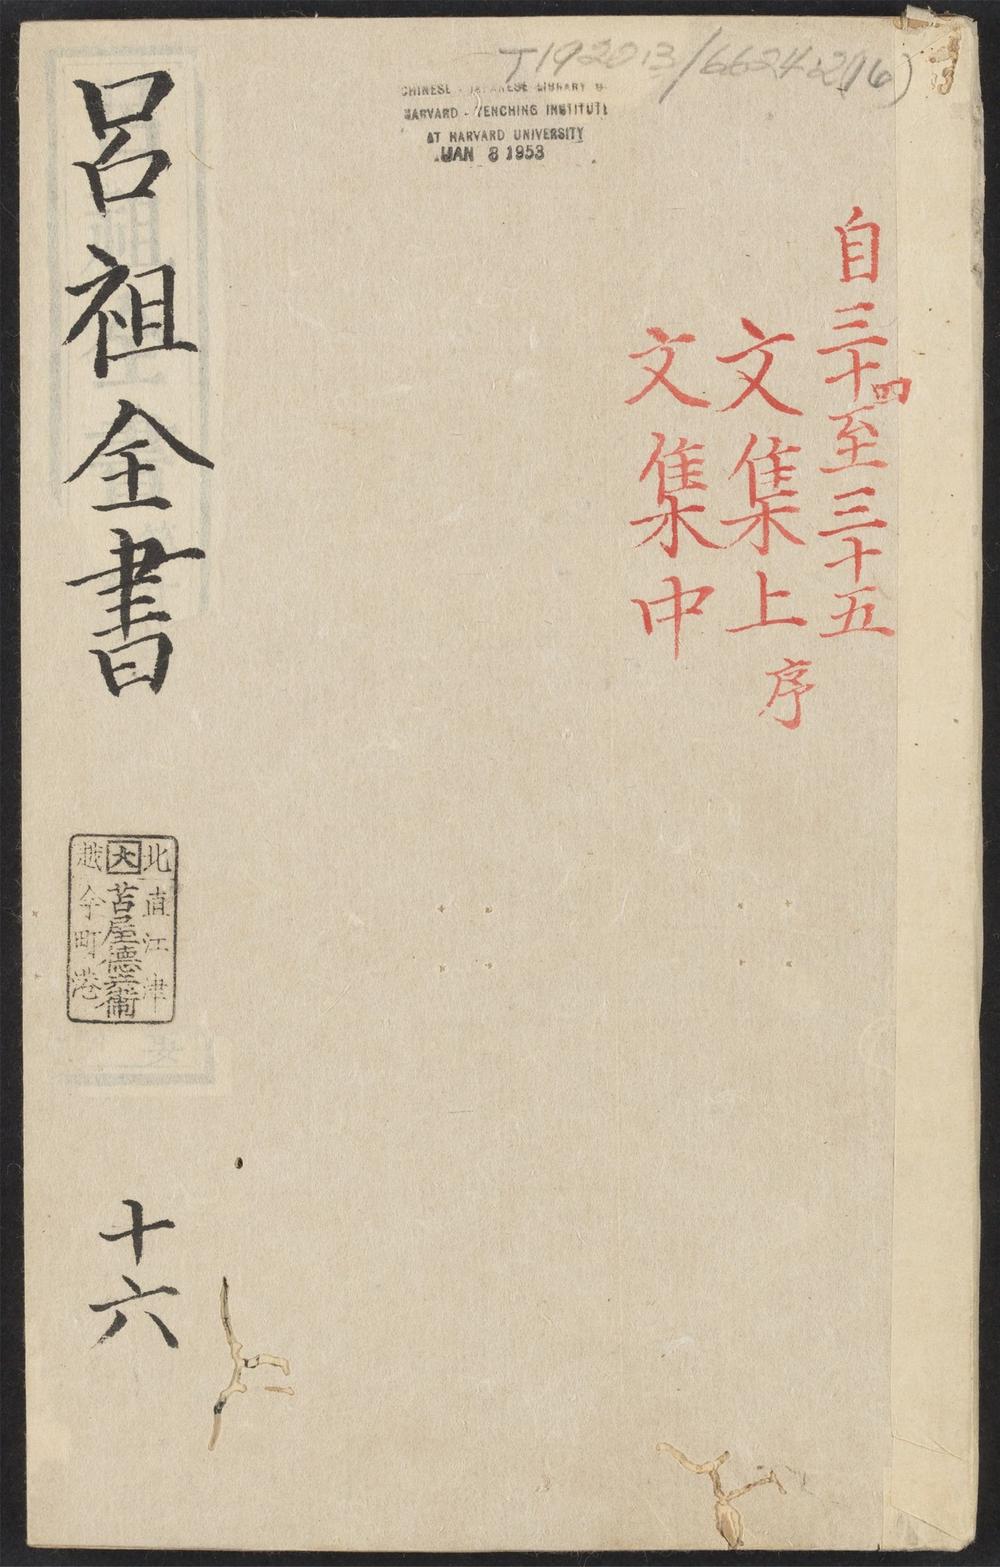 T1920.13/6624.2(16)
CHINESE - JAPANESE LIBRARY
HARVARD - YENCHING INSTITUTE
AT HARVARD UNIVERSITY
JAN 8 1953
自三十四至三十五
文集上 序
文集中
呂祖全書
北直江津
大 苫屋德兵衛
越今町港
十六